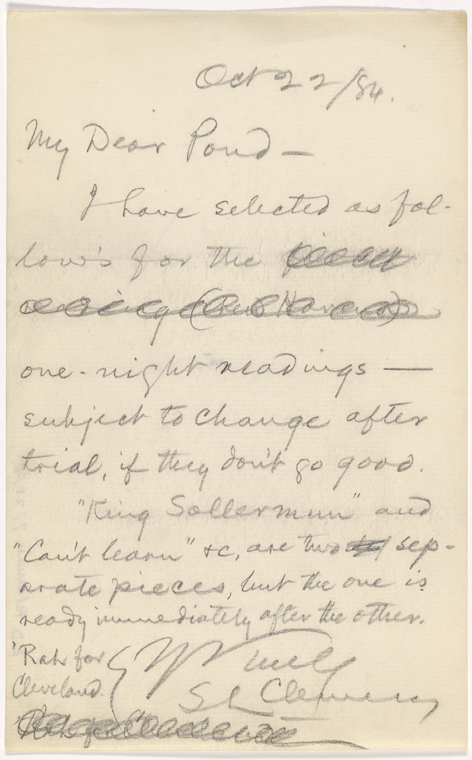 Oct 22/84.
My Dear Pond —
I have selected as fol-
low's for the
one-night readings —
subject to change after
trial, if they don't go good.
"King Sollermun" and
"Can't learn" &c, are two sep-
arate pieces, but the one is
ready immediately after the other.
'Rah for
Cleveland.
S L Clemens